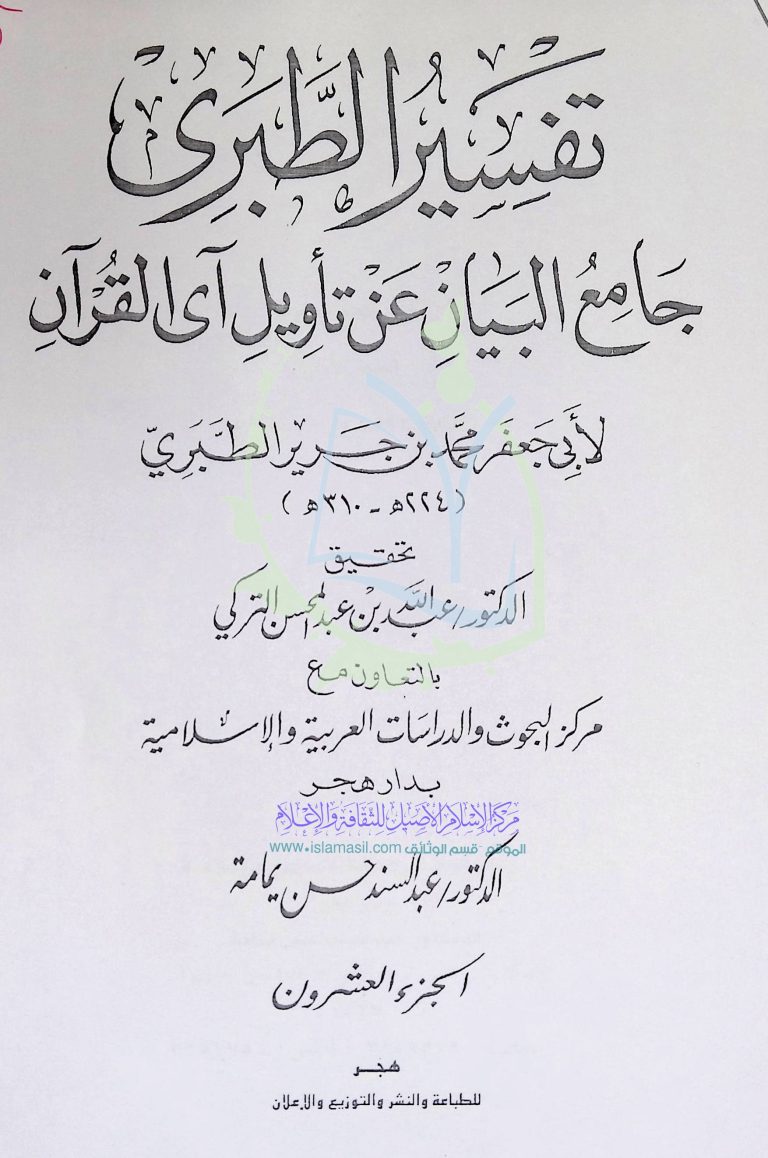 تفسير الطَّبَرِى
جَامِعُ البَيَانِ عَنْ تأوِيلِ آى القُرآنِ
لأَبِي جَعفَر محمَّد بن جَرير الطَّبَرِيّ
(٢٢٤هـ - ٣١٠هـ)
تحقيق
الدكتور/عبد اللَّه بن عبد المحسن التركي
بالتعاون مع
مركز البحوث والدراسات العربية والإسلامية
بدار هجر
مركز الإسلام الأصيل للثقافة والإعلام
الموقع - قسم الوثائق www.islamasil.com
الدكتور/عبد السند حسن يمامة
الجزء العشرون
هجر
للطباعة والنشر والتوزيع والإعلان